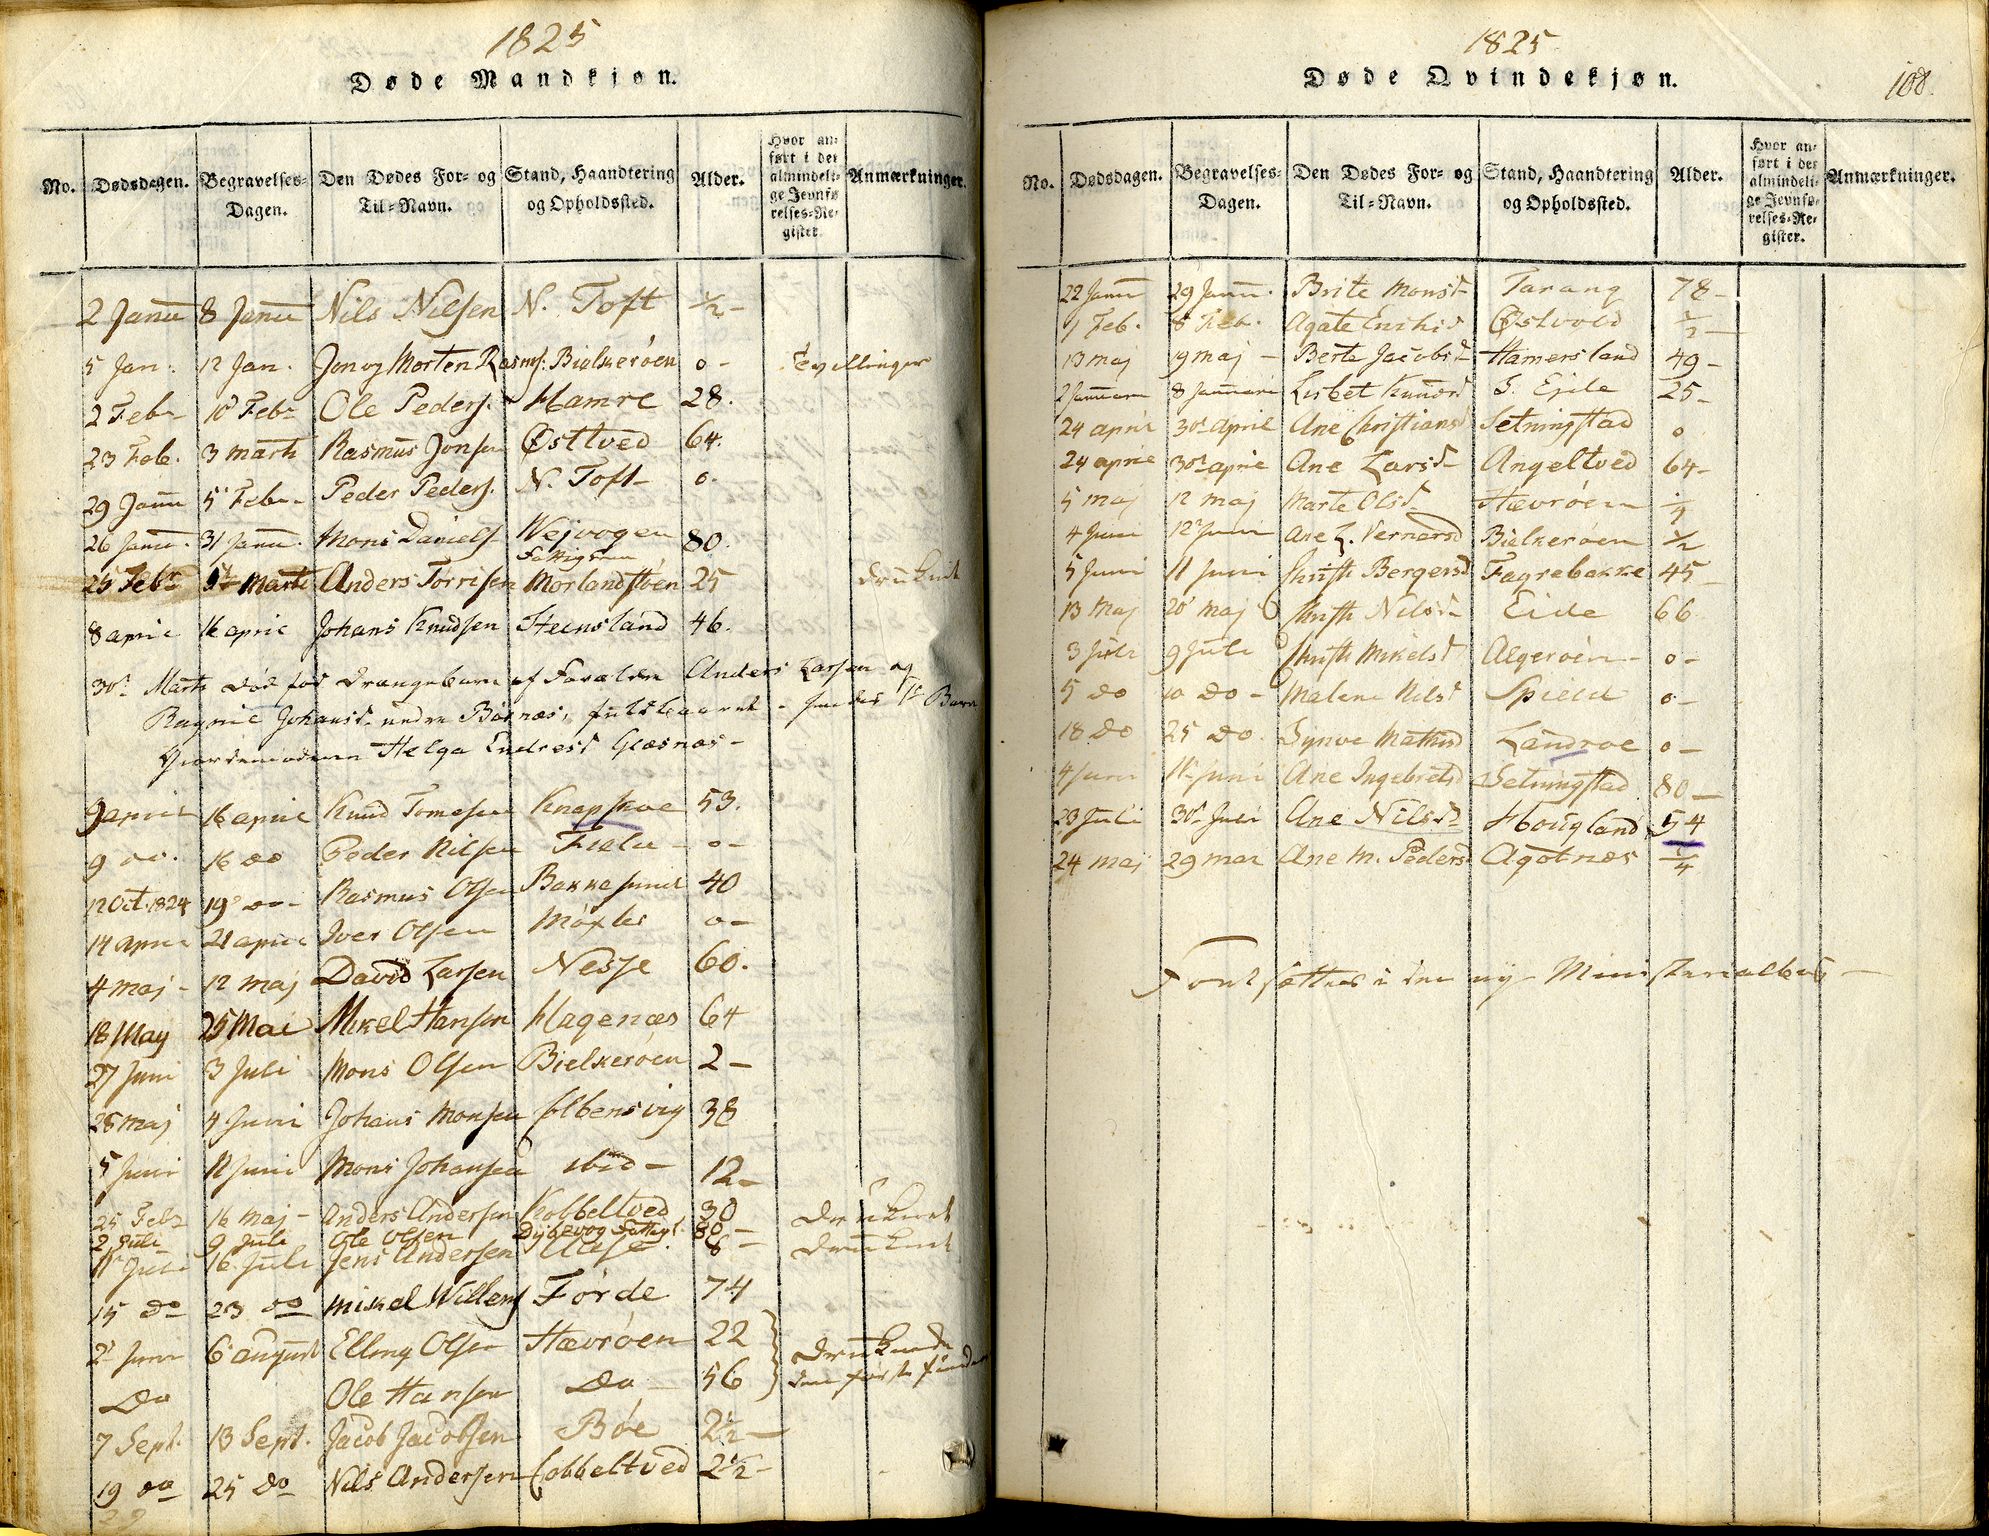 1825
Døde Mandkjøn.
No. Dødsdagen. Begravelses-Dagen. Den Dødes For- og Til-Navn. Stand, Haandtering og Opholdssted. Alder. Hvor anført i det almindelige Jevnførelses-Register. Anmærkninger.
2 Janu 8 Janu Nils Nilsen N. Toft ½ -
5 Jan. 12 Jan. Jon og Morten Rasms. Bielkerøen 0 - Tvillinger
2 Febr 10 Febr Ole Peders. Hamre 28.
23 Feb. 3 marti Rasmus Jonsen Østtved 64.
29 Janu 5 Febr Peder Peders. N. Toft - 0.
26 Janu. 31 Janu. Mons Daniels Wejvogen 80.
Fattiglem
25 Febr 5 Marti Anders Torrisen Morlandstøen 25 druknit
8 april 16 april Johans Knudsen Steensland 46.
30 Marti død fød drængebarn af Forældre Anders Larsen og
Ragnil Johansd. Børnæs, fuldbaaret -
Giordemodern Helga Endresd Glæsnæs -
9 april 16 april Knud Tomesen Knapskoe 53.
9 do. 16 do Peder Nilsen - 0 -
12 Oct. 1824 19 do - Rasmus Olsen Bakkesund 40
14 april 21 april Iver Olsen Møxter 0 -
4 maj - 12 maj David Larsen Nesse 60.
18 May 25 Mai Mikel Hansen Hagenæs 64
27 Juni 3 Juli Mons Olsen Bielkerøen 2 -
28 maj 4 Juni Johans Monsen Colbensvig 38
5 Juni 11 Juni Mons Johansen ibid - 12 -
25 Feb 16 maj - Anders Andersen Kobbeltved 30 druknet
2 Juli 9 Juli Ole Olsen Dybevog 80 -
11 Juli 16 Juli Jens Andersen 8 - druknet
15 do 23 do Mikel Willems Førde 74
2 Juni 6 august Elling Olsen Hævrøen 22 druknede
Do Ole Hansen Do - 56 den første
7 Sept. 13 Sept. Jacob Jacobsen Bøe 2½ -
19 do 25 do Nils Andersen Cobbeltved 2½ -
29
1825
Døde Qvindekjøn.
108.
No. Dødsdagen. Begravelses-Dagen. Den Dødes For- og Til-Navn. Stand, Haandtering og Opholdssted. Alder. Hvor anført i det almindelige Jevnførelses-Register. Anmærkninger.
22 Janu 29 Janu. Brite Monsd Tarang 78 -
1 Feb. 8 Feb. Agate Østvold ½ -
13 maj 19 maj - Berte Jacobsd Hamersland 49 -
2 Januari 8 Januari Lisbet Knudsd S. Ejde 25 -
24 april 30 april Ane Christiansd Setningstad 0
24 april 30 april Ane Larsd - Angeltved 64 -
5 maj 12 maj Marte Olsd Hævrøen ¼
4 Juni 12 Juni Ane L. Vernersd Bielkerøen ½
5 Juni 11 Juni Christi Bergersd Fagrebakke 45 -
13 Maj 20 maj Christi Nilsd - Eide 66
3 Juli 9 Juli Christi Mikelsd Algerøen - 0 -
5 do 10 do - Malene Nilsd Spield 0 -
18 Do 25 Do. Synve Mathisd Landroe 0 -
4 Juni 11 Juni Ane Ingebretsd Setningstad 80 -
23 Juli 30 Juli Ane Nilsd - Hougland 54
24 maj 29 mai Ane M. Pedersd Agotnæs ¼
Fortsættes i den ny Ministerialbog -